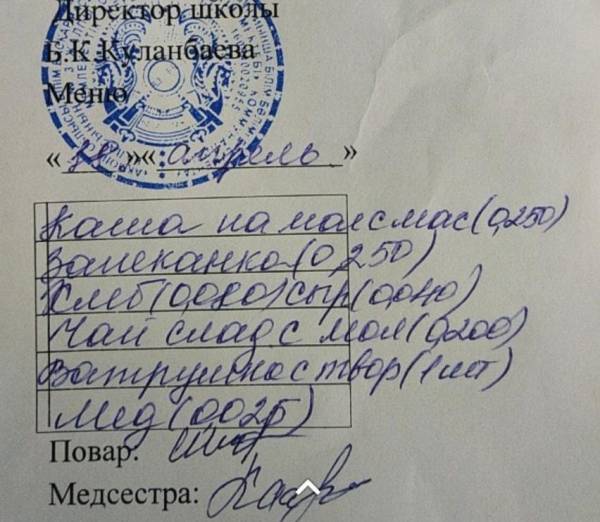 Директор школы
Б.К.Куланбаева
Меню
« » « апрель »
Каша на мол с мас (0,250)
Запеканка (0,250)
Хлеб (0,080) сыр (0,040)
Чай слад с мол (0,200)
Ватрушка с твор (1 шт)
Мед (0,025)
Повар:
Медсестра: